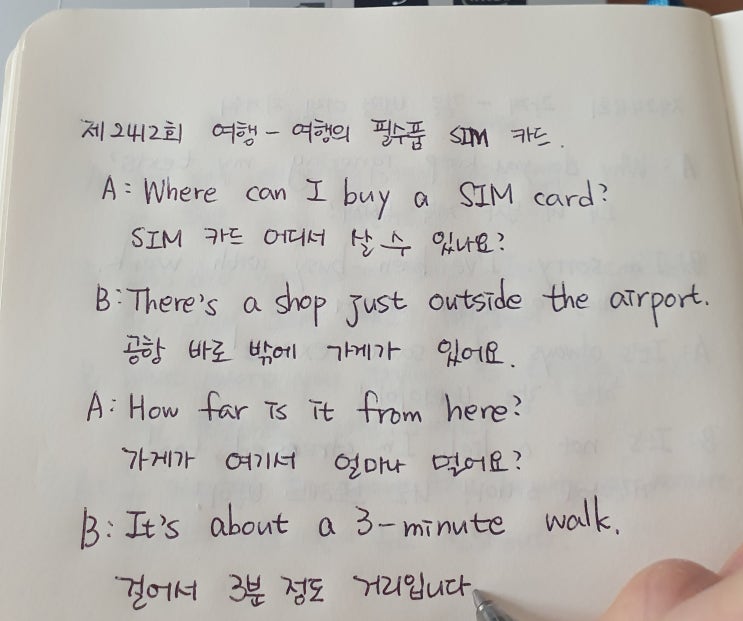 제2412회 여행 - 여행의 필수품 SIM 카드.
A: Where can I buy a SIM card?
SIM 카드 어디서 살 수 있나요?
B: There's a shop just outside the airport.
공항 바로 밖에 가게가 있어요.
A: How far is it from here?
가게가 여기서 얼마나 멀어요?
B: It's about a 3-minute walk.
걸어서 3분 정도 거리입니다